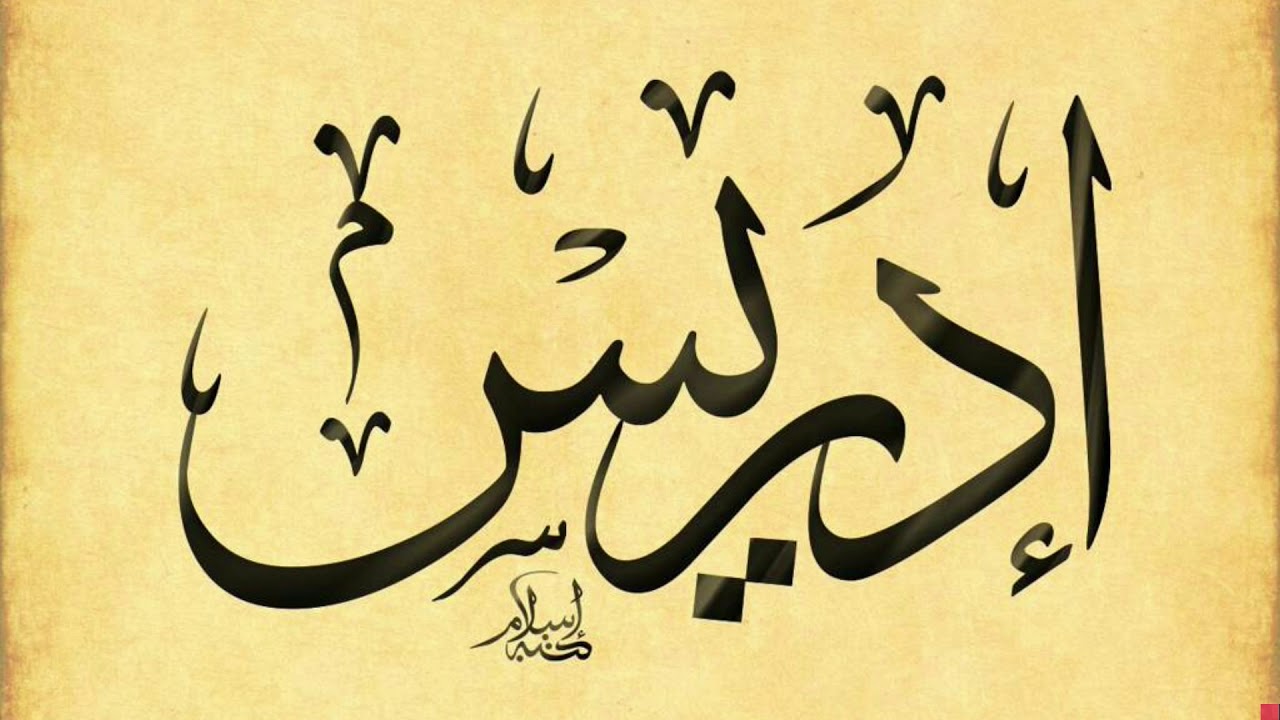 إدريس
كتبه إسلام